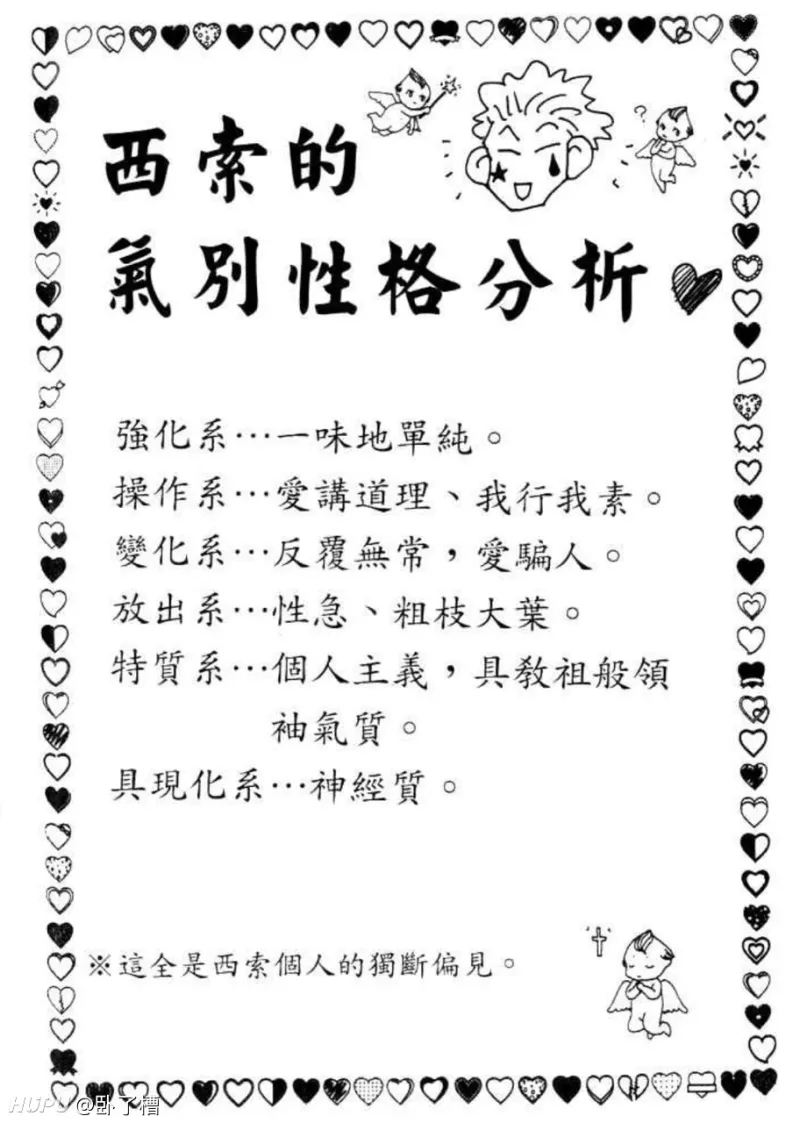 西索的
氣別性格分析
強化系…一味地單純。
操作系…愛講道理、我行我素。
變化系…反覆無常，愛騙人。
放出系…性急、粗枝大葉。
特質系…個人主義，具教祖般領
袖氣質。
具現化系…神經質。
※這全是西索個人的獨斷偏見。
HUPU @卧了槽